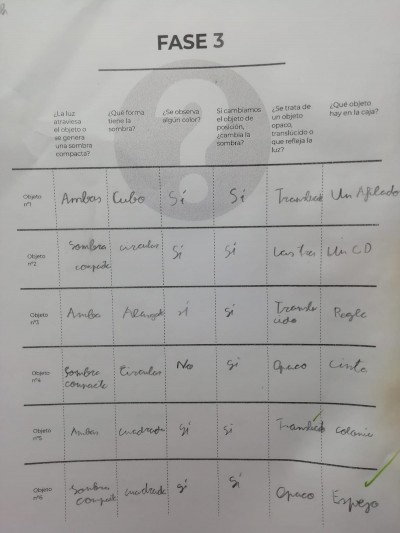 FASE 3
¿La luz atraviesa el objeto o se genera una sombra compacta?
¿Qué forma tiene la sombra?
¿Se observa algún color?
Si cambiamos el objeto de posición, ¿cambia la sombra?
¿Se trata de un objeto opaco, translúcido o que refleja la luz?
¿Qué objeto hay en la caja?
Objeto nº1 Ambas Cubo Sí Sí Un Afilado
Objeto nº2 Sombra compacta circular Si Si Las tres Un CD
Objeto nº3 Ambas si si Regla
Objeto nº4 Sombra compacta Circular No Si Opaco Cinta
Objeto nº5 Ambas cuadrada Si si colonia
Objeto nº6 Sombra compacta cuadrada Si Si Opaco Espejo